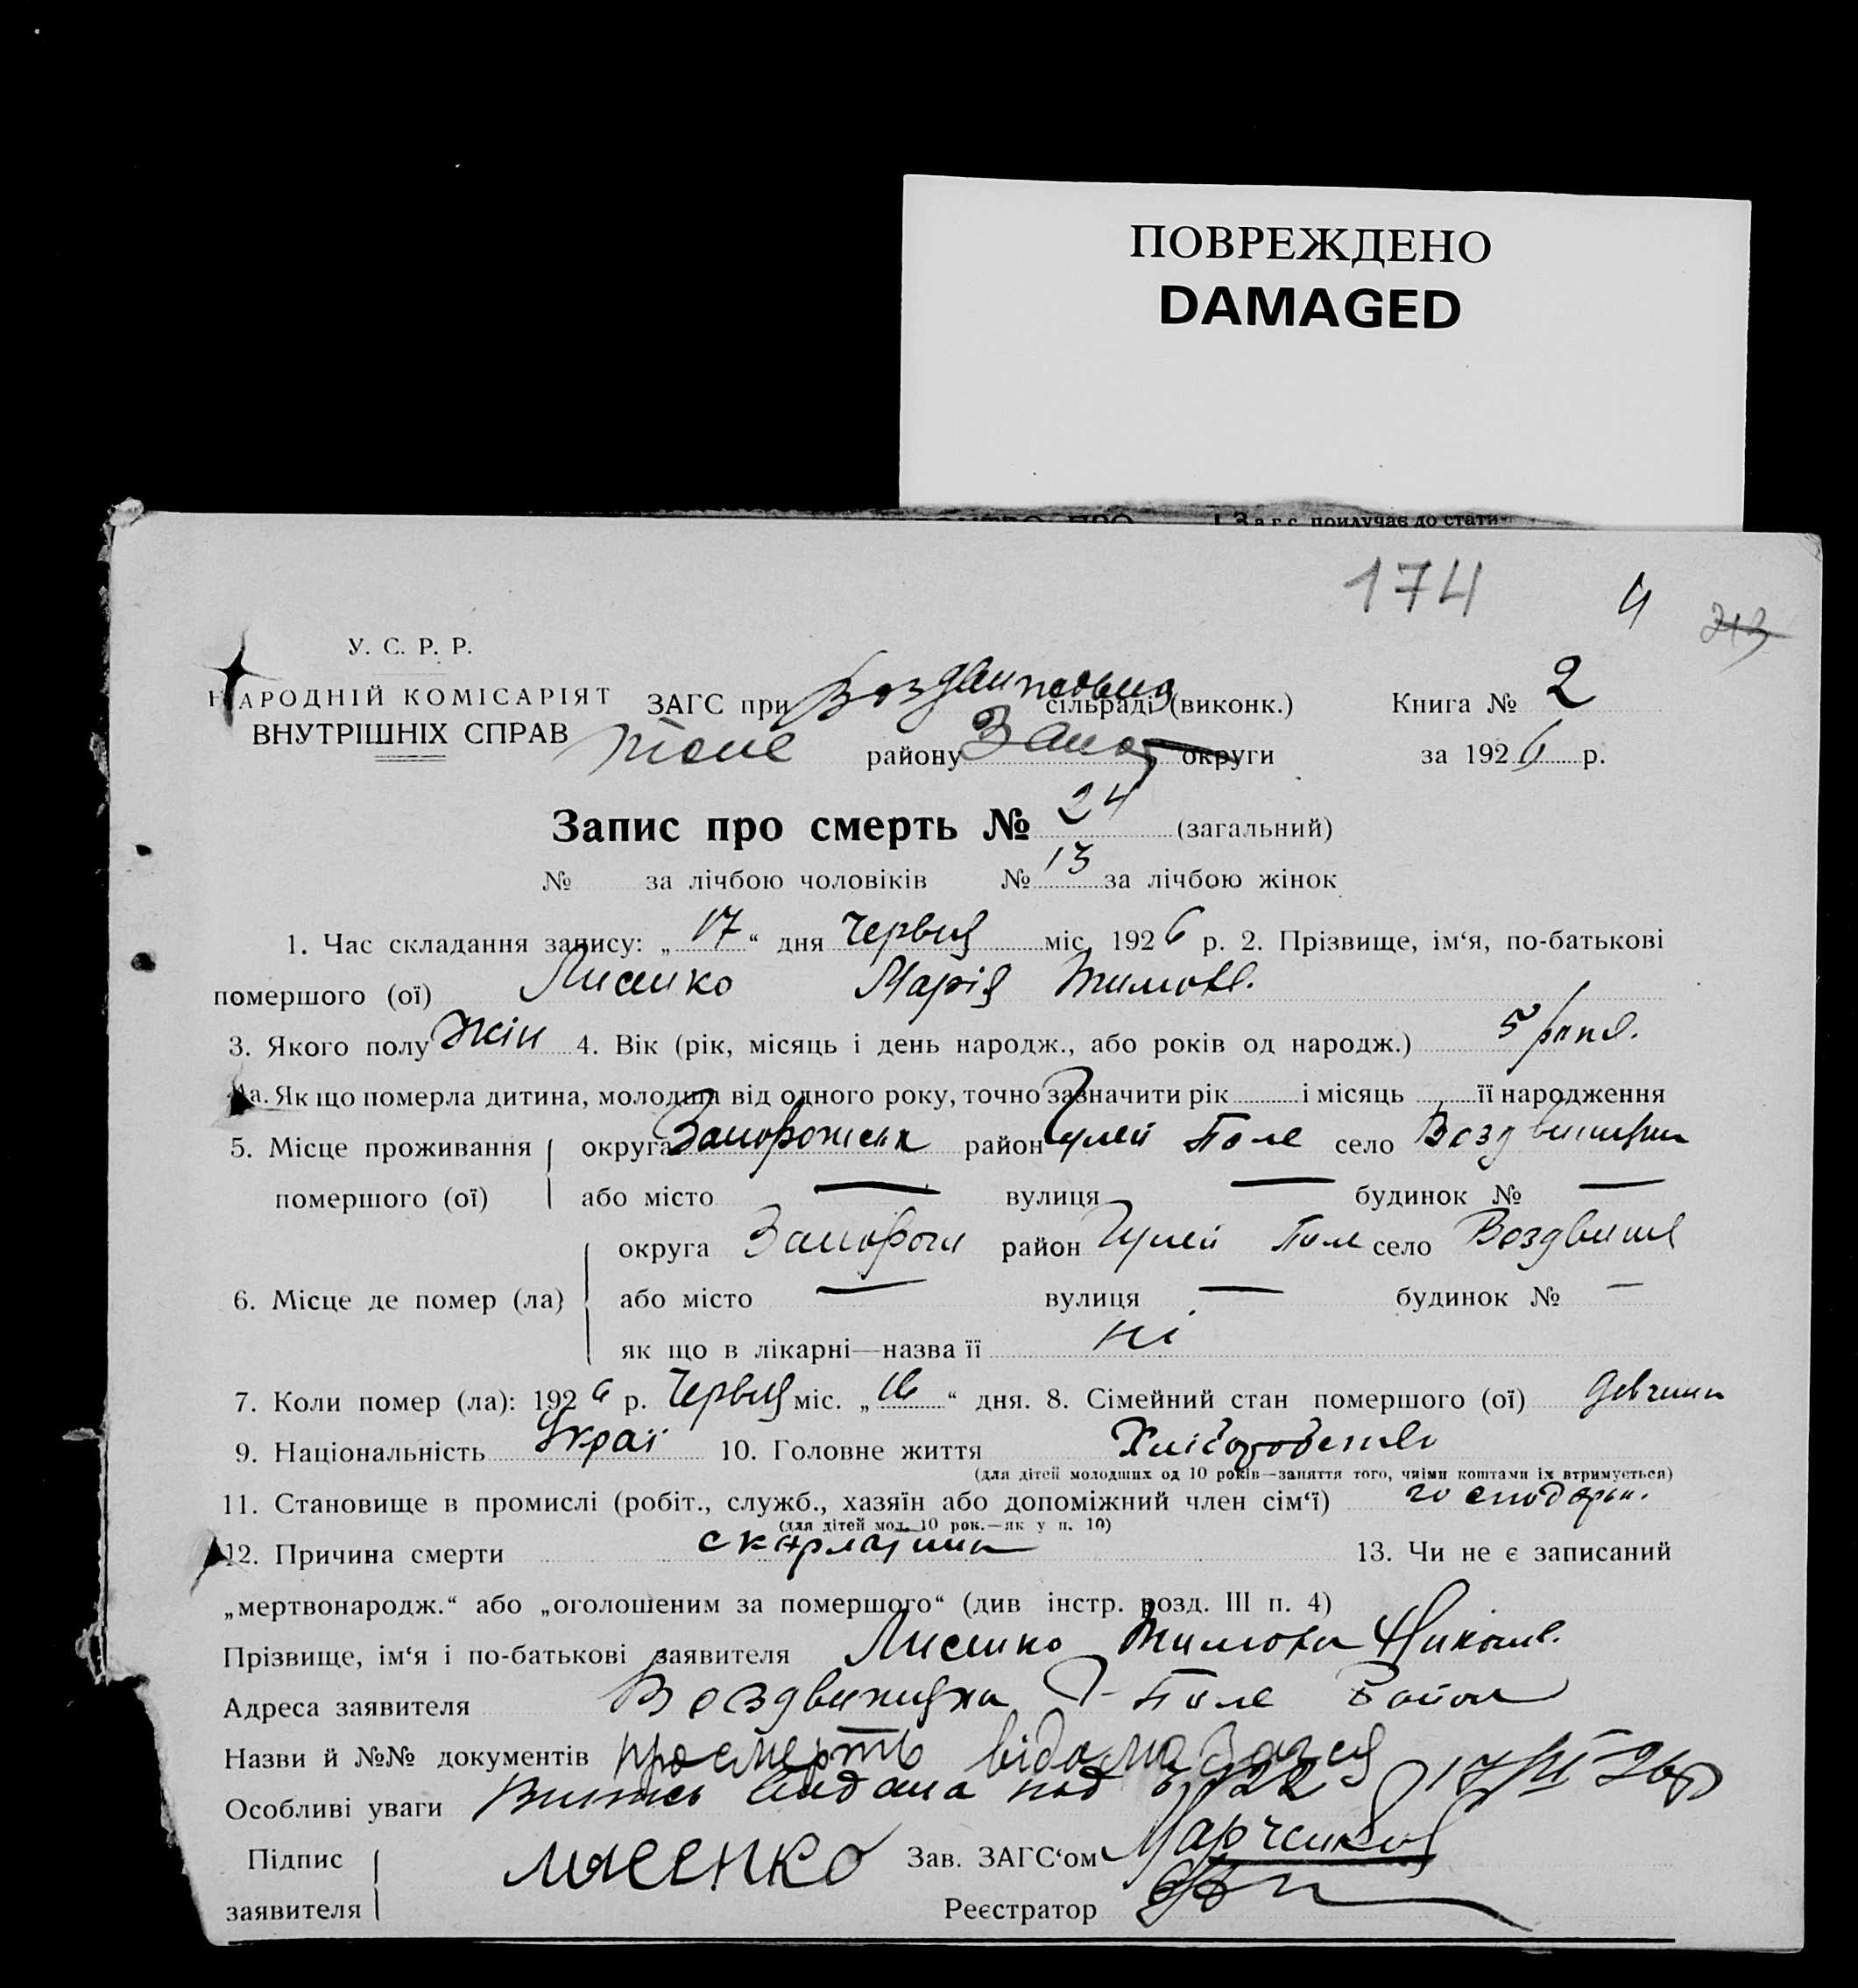 ПОВРЕЖДЕНО
DAMAGED
І Загс прилучає до стати-
174 4 213
У. С. Р. Р.
НАРОДНІЙ КОМІСАРІЯТ
ВНУТРІШНІХ СПРАВ
ЗАГС при сільраді (виконк.) Книга № 2
Поле району Запор округи за 1926 р.
Запис про смерть № 24 (загальний)
№ за лічбою чоловіків № 13 за лічбою жінок
1. Час складання запису: „17“ дня Червця міс. 1926 р. 2. Прізвище, ім‘я, по-батькові
помершого (ої) Лисенко Марія Тимов.
3. Якого полу Жін 4. Вік (рік, місяць і день народж., або років од народж.) 5
4а. Як що померла дитина, молодша від одного року, точно зазначити рік і місяць її народження
5. Місце проживання округа Запорожськ район Гуляй Поле село
помершого (ої) або місто — вулиця — будинок № —
округа Запорож район Гуляй Поле село Воздвиж
6. Місце де помер (ла) або місто — вулиця — будинок № —
як що в лікарні—назва її ні
7. Коли помер (ла): 1926 р. Червця міс. „16“ дня. 8. Сімейний стан помершого (ої) девчина
9. Національність Украї 10. Головне життя Хліборобство
(для дітей молодших од 10 років—заняття того, чиїми коштами їх втримується)
11. Становище в промислі (робіт., служб., хазяїн або допоміжний член сім‘ї) господарь.
(для дітей мол. 10 рок.—як у п. 10)
12. Причина смерти скарлатина 13. Чи не є записаний
„мертвонародж.“ або „оголошеним за помершого“ (див інстр. розд. III п. 4)
Прізвище, ім‘я і по-батькові заявителя Лисенко Тимофи Никол.
Адреса заявителя Воздвижидка Г-Поле Район
Назви й №№ документів про смерть відома Загся
Особливі уваги Витись видана под № 22 17/VI-26р
Підпис
заявителя лисенко Зав. ЗАГС‘ом Марченков
Реєстратор